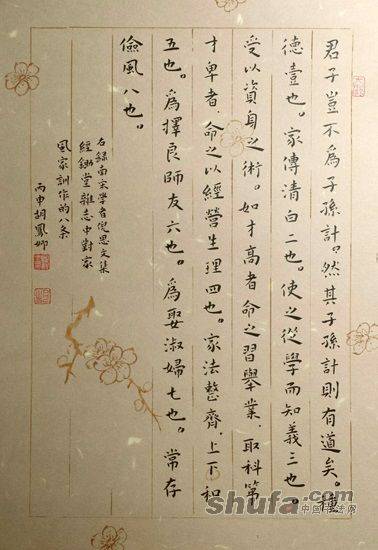 君子豈不爲子孫計。然其子孫計則有道矣。種
德壹也。家傳清白二也。使之從學而知義三也。
受以資身之術。如才高者命之習舉業、取科第
才卑者、命之以經營生理四也。家法整齊、上下和
五也。爲擇良師友六也。爲娶淑婦七也。常存
儉風八也。
右録南宋學者倪思文集
經鋤堂雜志中對家
風家訓作的八条
丙申胡鳳
shufa.com
中国书法网